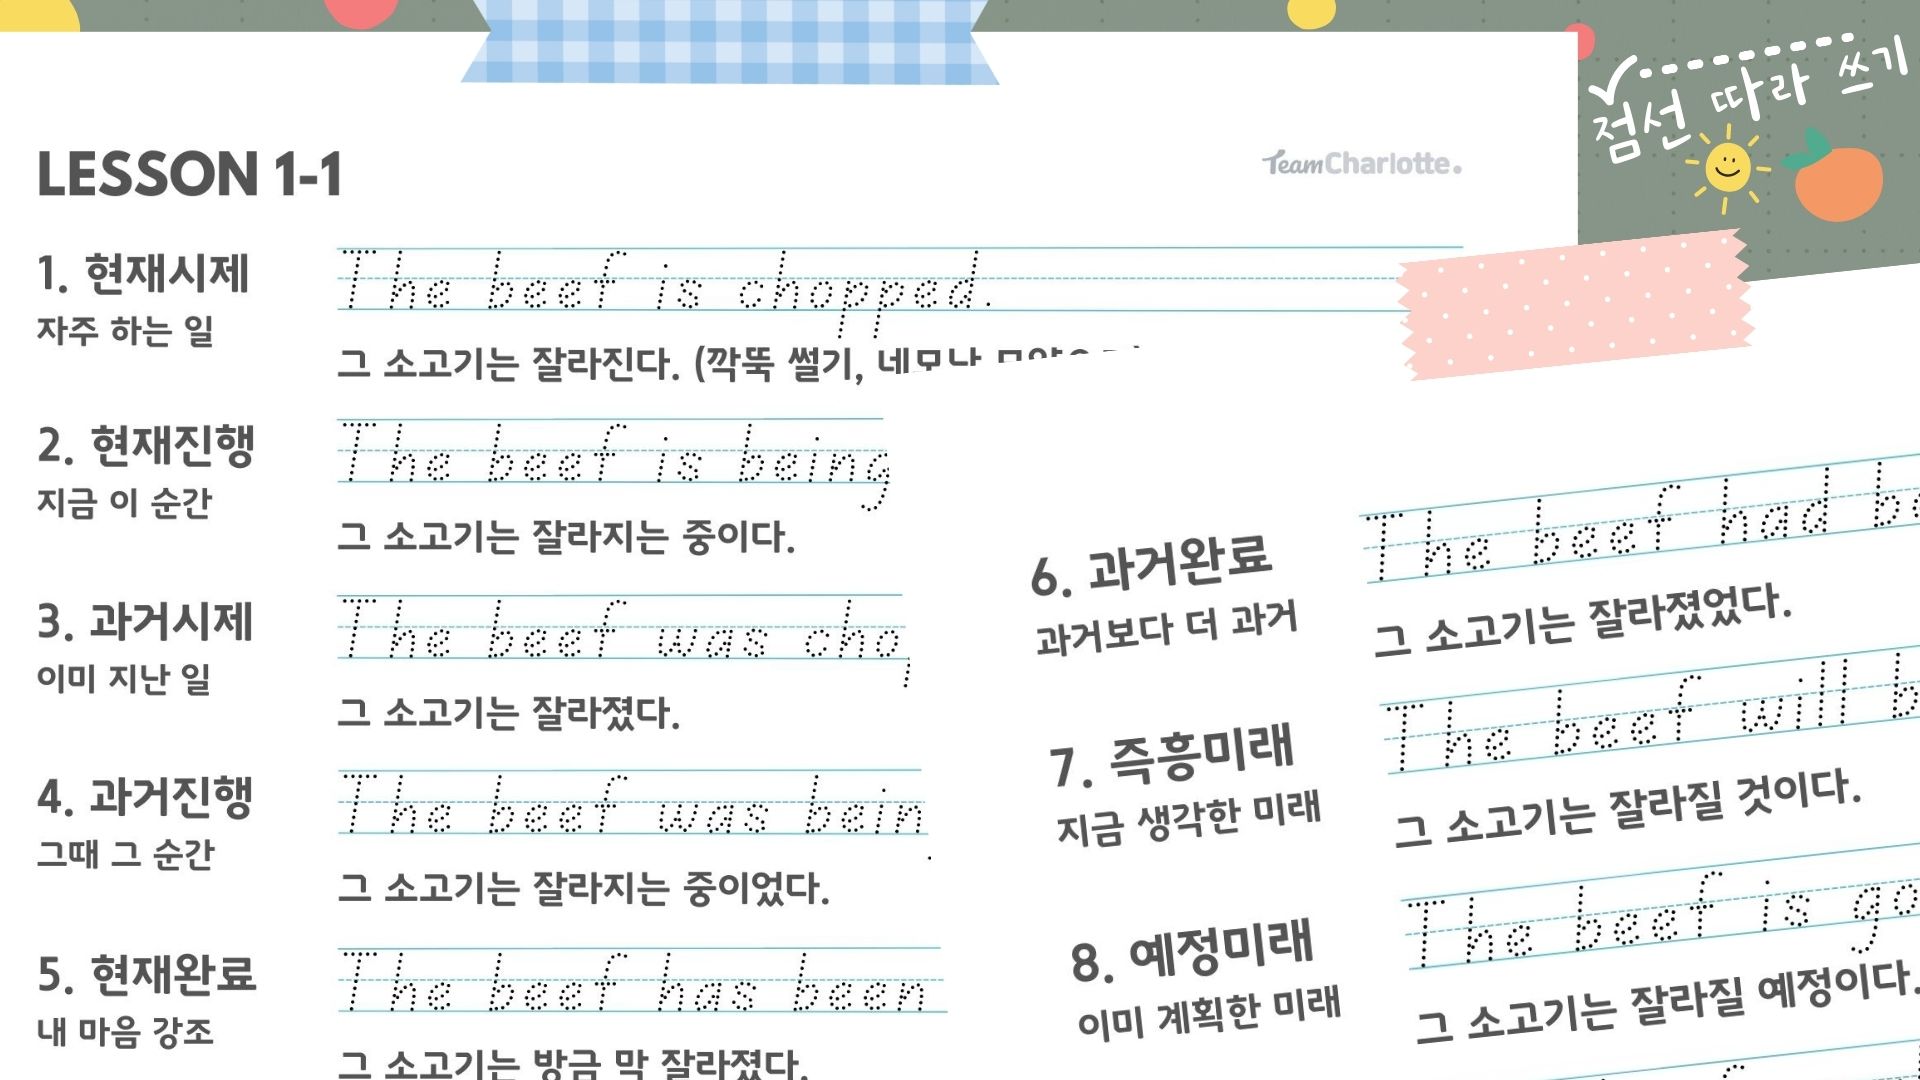 점선 따라 쓰기
LESSON 1-1
TeamCharlotte.
1. 현재시제
자주 하는 일
The beef is chopped.
그 소고기는 잘라진다. (깍뚝 썰기, 네모난
2. 현재진행
지금 이 순간
The beef is being
그 소고기는 잘라지는 중이다.
3. 과거시제
이미 지난 일
The beef was cho
그 소고기는 잘라졌다.
4. 과거진행
그때 그 순간
The beef was bein
그 소고기는 잘라지는 중이었다.
5. 현재완료
내 마음 강조
The beef has been
그 소고기는 방금 막 잘라졌다.
6. 과거완료
과거보다 더 과거
The beef had be
그 소고기는 잘라졌었다.
7. 즉흥미래
지금 생각한 미래
The beef will b
그 소고기는 잘라질 것이다.
8. 예정미래
이미 계획한 미래
The beef is go
그 소고기는 잘라질 예정이다.